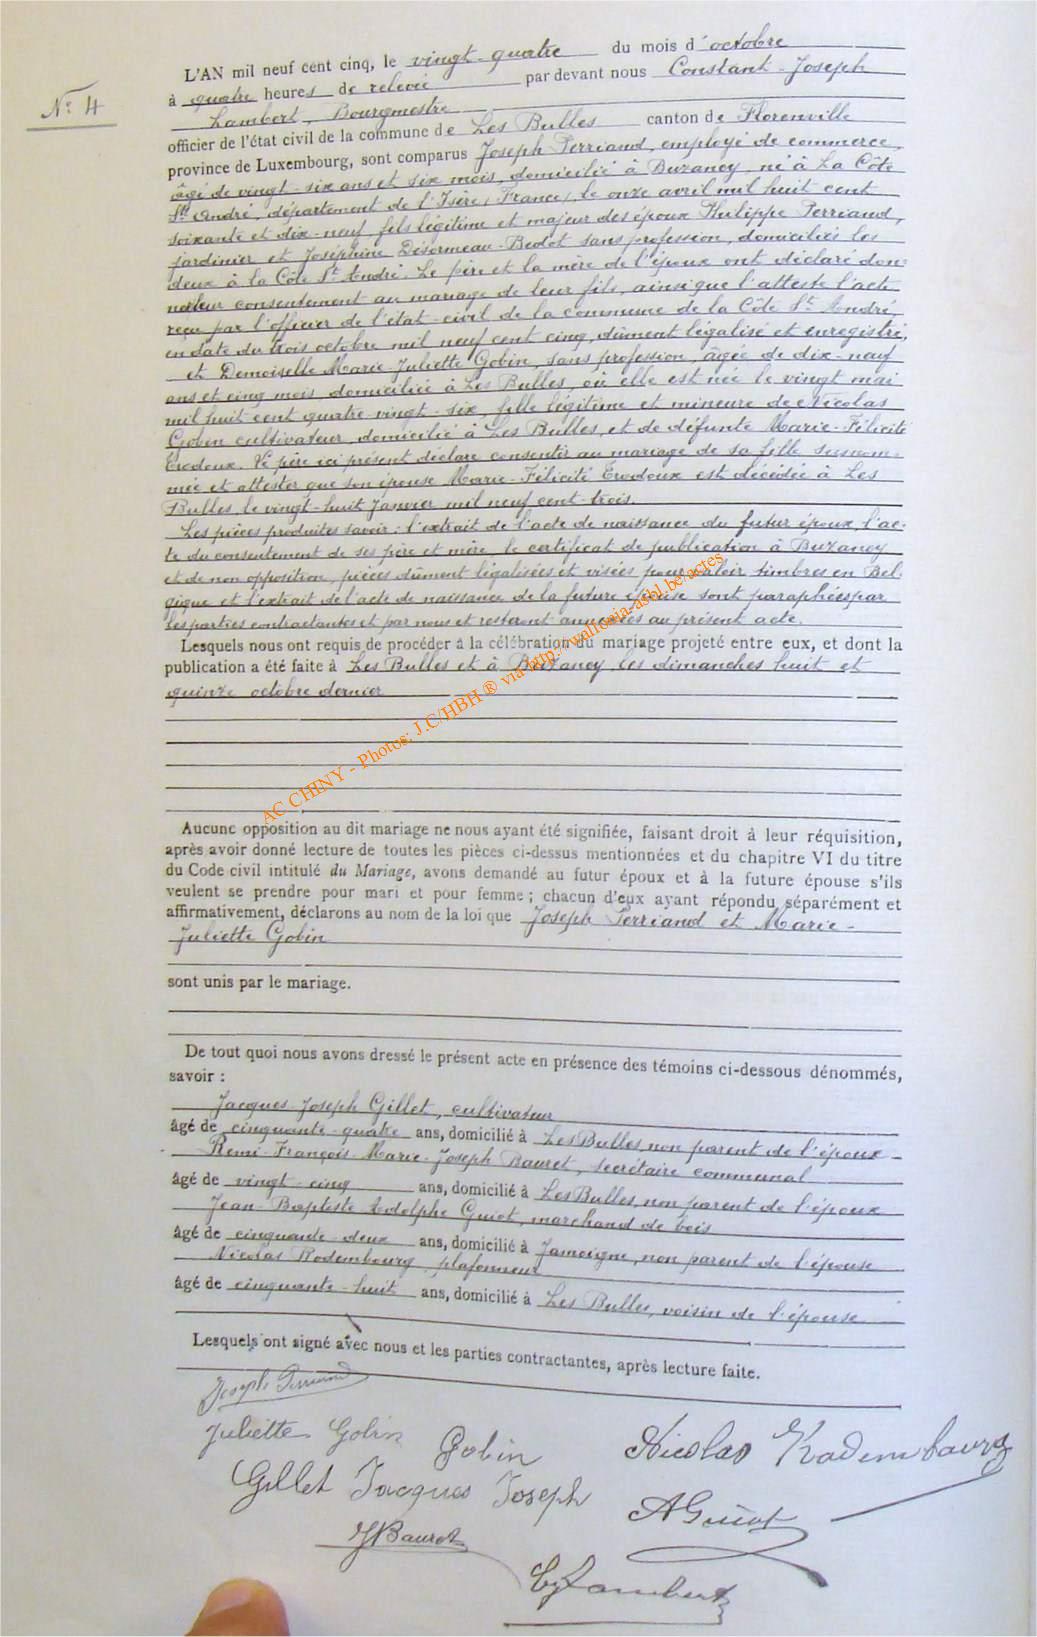 N° 4
L'AN mil neuf cent cinq, le vingt-quatre du mois d'octobre
à quatre heures de relevée par devant nous Constant-Joseph
Lambert, Bourgmestre
officier de l'état civil de la commune de Les Bulles canton de Florenville
province de Luxembourg, sont comparus Joseph Perriand, employé de commerce,
âgé de vingt-six ans et six mois, domicilié à Buzancy, né à La Côte
St André, département de l'Isère (France), le onze avril mil huit cent
soixante et dix-neuf, fils légitime et majeur des époux Philippe Perriand,
jardinier et Joséphine Désormeau-Bedot sans profession, domiciliés les
deux à la Côte St André. Le père et la mère de l'époux ont déclaré don-
ner leur consentement au mariage de leur fils, ainsi que l'atteste l'acte
reçu par l'officier de l'état-civil de la commune de la Côte St André,
en date du trois octobre mil neuf cent cinq, dûment légalisé et enregistré,
et Demoiselle Marie Juliette Gobin, sans profession, âgée de dix-neuf
ans et cinq mois domiciliée à Les Bulles, où elle est née le vingt mai
mil huit cent quatre-vingt-six, fille légitime et mineure de Nicolas
Gobin cultivateur, domicilié à Les Bulles, et de défunte Marie-Félicité
Evodoux. Le père ici présent déclare consentir au mariage de sa fille susnom-
mée et attester que son épouse Marie-Félicité Evodoux est décédée à Les
Bulles, le vingt-huit Janvier mil neuf cent-trois.
Les pièces produites savoir: l'extrait de l'acte de naissance du futur époux, l'ac-
te du consentement de ses père et mère, le certificat de publication à Buzancy
et de non opposition, pièces dûment légalisées et visées pour valoir timbres en Bel-
gique et l'extrait de l'acte de naissance de la future épouse sont paraphées par
les parties contractantes et par nous et resteront annexées au présent acte.
Lesquels nous ont requis de procéder à la célébration du mariage projeté entre eux, et dont la
publication a été faite à Les Bulles et à Buzancy, les dimanches huit et
quinze octobre dernier
AC CHINY - Photos: J.C/HBH ® via http://wallonia-asbl.be/actes
Aucune opposition au dit mariage ne nous ayant été signifiée, faisant droit à leur réquisition,
après avoir donné lecture de toutes les pièces ci-dessus mentionnées et du chapitre VI du titre
du Code civil intitulé du Mariage, avons demandé au futur époux et à la future épouse s'ils
veulent se prendre pour mari et pour femme; chacun d'eux ayant répondu séparément et
affirmativement, déclarons au nom de la loi que Joseph Perriand et Marie-
Juliette Gobin
sont unis par le mariage.
De tout quoi nous avons dressé le présent acte en présence des témoins ci-dessous dénommés,
savoir :
Jacques Joseph Gillet, cultivateur
âgé de cinquante-quatre ans, domicilié à Les Bulles, non parent de l'époux
Remi-François-Marie-Joseph Bauret, secrétaire communal
âgé de vingt-cinq ans, domicilié à Les Bulles, non parent de l'époux
Jean-Baptiste Adolphe Guiot, marchand de bois
âgé de cinquante-deux ans, domicilié à Jamoigne, non parent de l'épouse
Nicolas Rodembourg, plafonneur
âgé de cinquante-huit ans, domicilié à Les Bulles, voisin de l'épouse
Lesquels ont signé avec nous et les parties contractantes, après lecture faite.
Joseph Perriand
Juliette Gobin Gobin Nicolas Rodembourg
Gillet Jacques Joseph AGuiot
Bauret
Lambert